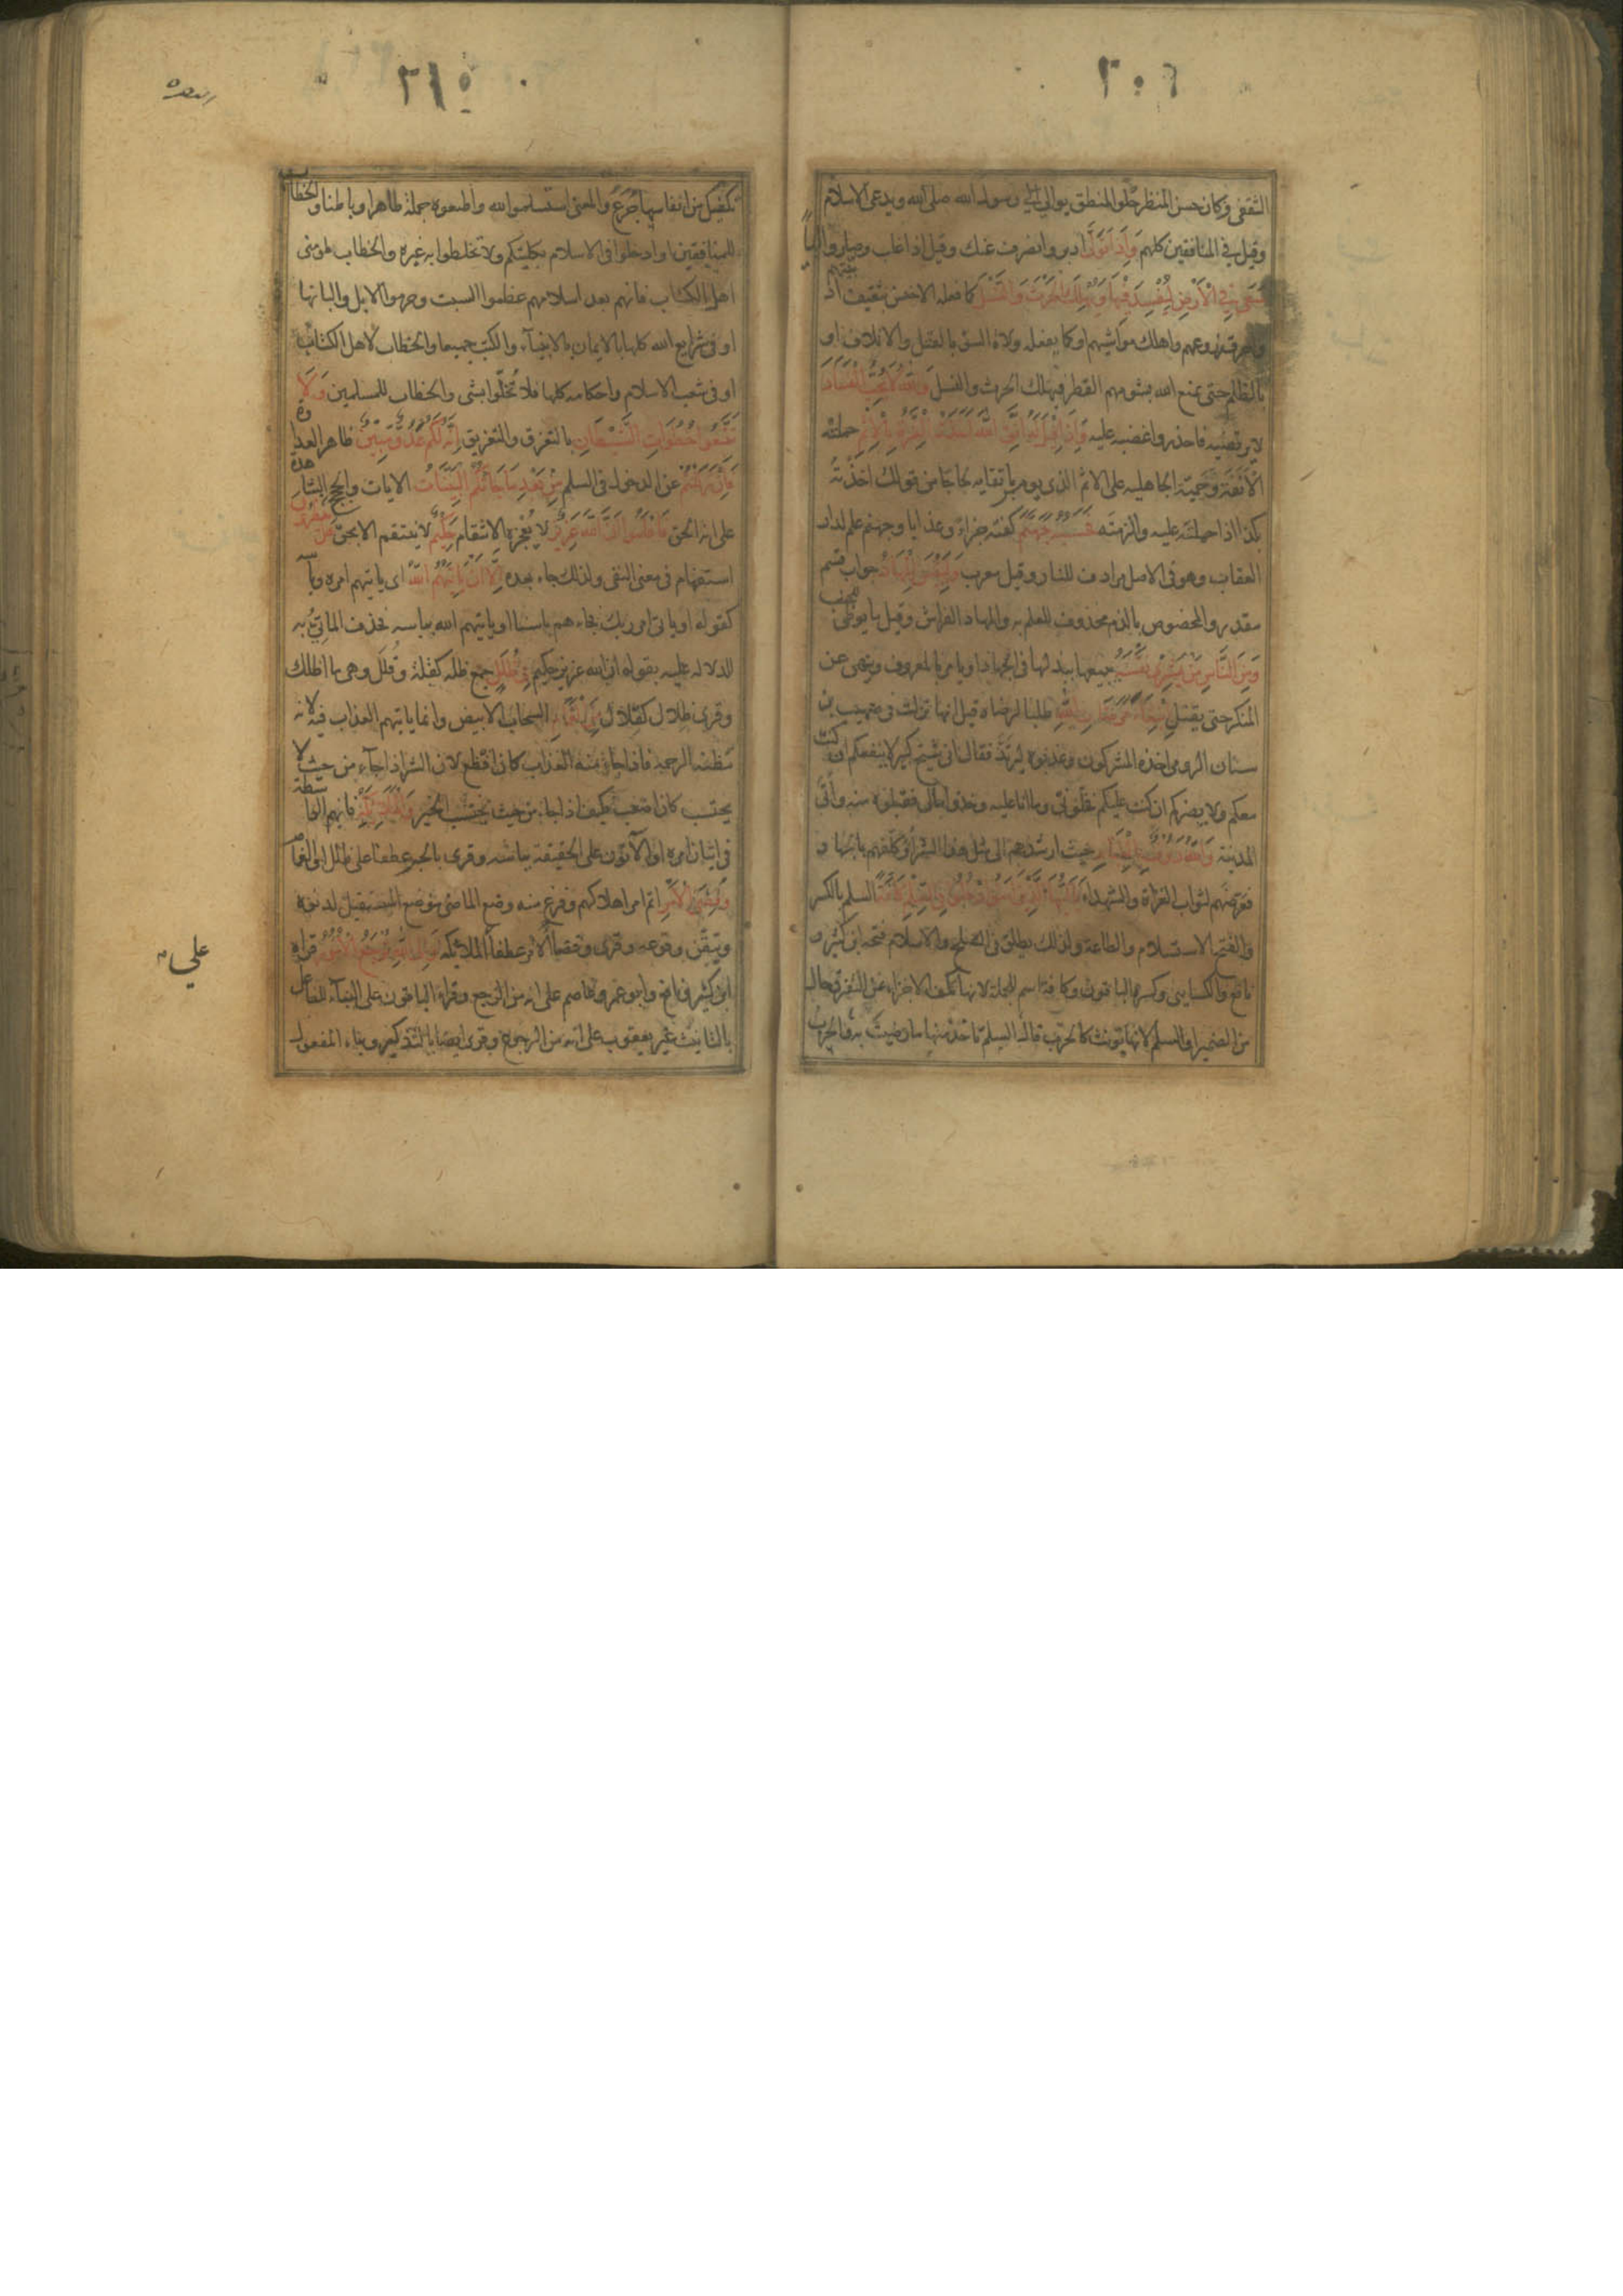 الثقفى وكان حسن المنظر حلو المنطق يوالى رسول الله صلى الله ويدعى الاسلام
وقيل فى المنافقين كلهم وَاِذَا تَوَلّٰى ادبر وانصرف عنك وقيل اذا غلب وصار واليا
سَعٰى فِى الْاَرْضِ لِيُفْسِدَ فِيْهَا وَيُهْلِكَ الْحَرْثَ وَالنَّسْلَ كما فعله الاخنس بثقيف اذ بيتهم
واحرق زروعهم واهلك مواشيهم او كما يفعله ولاة السوء بالقتل والاتلاف او
بالظلم حتى يمنع الله بشومهم القطر فيهلك الحرث والنسل وَاللهُ لَا يُحِبُّ الْفَسَادَ
لا يرتضيه فاحذروا غضبه عليه وَاِذَا قِيْلَ لَهُ اتَّقِ اللهَ اَخَذَتْهُ الْعِزَّةُ بِالْاِثْمِ حملته
الانفة وحمية الجاهلية على الاثم الذى يومر باتقايه لجاجا من قولك اخذته
بكذا اذا حملته عليه والزمته فَحَسْبُهُ جَهَنَّمُ كفته جزاء وعذابا وجهنم علم لدار
العقاب وهو فى الاصل مرادف للنار وقيل معرب وَلَبِئْسَ الْمِهَادُ جواب قسم
مقدر والمخصوص بالذم محذوف للعلم به والمهاد الفراش وقيل ما يوطى للجنب
وَمِنَ النَّاسِ مَنْ يَشْرِىْ نَفْسَهُ يبيعها ببذلها فى الجهاد او يامر بالمعروف وينهى عن
المنكر حتى يقتل ابْتِغَاءَ مَرْضَاتِ اللهِ طلبا لرضاه قيل انها نزلت فى صهيب بن
سنان الرومى اخذه المشركون وعذبوه ليرتد فقال انى شيخ كبير لا ينفعكم ان كنت
معكم ولا يضركم ان كنت عليكم فخلونى وما انا عليه وخذوا مالى فقبلوه منه واتى
المدينة وَاللهُ رَءُوْفٌ بِالْعِبَادِ حيث ارشدهم الى مثل هذا الشراء وكلفهم بالجهاد
فعرضهم لثواب الغزاة والشهداء يَا اَيُّهَا الَّذِيْنَ اٰمَنُوا ادْخُلُوْا فِى السِّلْمِ كَافَّةً السلم بالكسر
والفتح الاستسلام والطاعة ولذلك يطلق فى الصلح والاسلام فتحه ابن كثير و
نافع والكسايى وكسره الباقون وكافة اسم للجملة لانها تكف الاجزاء عن التفرق حال
من الضمير او السلم لانها تونث كالحرب قال السلم تاخذ منها ما رضيت به والحرب
تكفيك من انفاسها جُرَعٌ والمعنى استسلموا لله واطيعوه جملة ظاهرا وباطنا والخطاب
للمنافقين او ادخلوا فى الاسلام بكليتكم ولا تخلطوا به غيره والخطاب لمومنى
اهل الكتاب فانهم بعد اسلامهم عظموا السبت وحرموا الابل والبانها
او فى شرايع الله كلها بالايمان بالانبيآء والكتب جميعا والخطاب لاهل الكتاب
او فى شعب الاسلام واحكامه كلها فلا تُخلّوا بشى والخطاب للمسلمين وَلَا
تَتَّبِعُوْا خُطُوَاتِ الشَّيْطَانِ بالتفرق والتفريق اِنَّهُ لَكُمْ عَدُوٌّ مُبِيْنٌ ظاهر العداوة
فَاِنْ زَلَلْتُمْ عن الدخول فى السلم مِنْ بَعْدِ مَا جَاءَتْكُمُ الْبَيِّنَاتُ الايات والحجج الشاهدة
على انه الحق فَاعْلَمُوْا اَنَّ اللهَ عَزِيْزٌ لا يُعْجِزه الانتقام حَكِيْمٌ لا ينتقم الا بحق هَلْ يَنْظُرُوْنَ
استفهام فى معنى النفى ولذلك جاء بعده اِلَّا اَنْ يَأْتِيَهُمُ اللهُ اى ياتيهم امره وباسه
كقوله او ياتى امر ربك فجاءهم باسنا او ياتيهم الله بباسه فحذف الماتِىّ به
للدلالة عليه بقوله ان الله عزيز حكيم فِىْ ظُلَلٍ جمع ظلة كقلة وقُلَل وهى ما اظلك
وقرى ظِلال كقلال مِنَ الْغَمَامِ السحاب الابيض وانما ياتيهم العذاب فيه لانه
مَظنة الرحمة فاذا جاء منه العذاب كان افظع لان الشر اذا جآء من حيث لا
يحتسب كان اصعب فكيف اذا جاء من حيث يحتسب الخير وَالْمَلَائِكَةُ فانهم الواسطة
فى اتيان امره او الآتون على الحقيقة بباسه وقرى بالجر عطفا على ظلل او الغمام
وَقُضِىَ الْاَمْرُ اتم امر اهلاكهم وفرغ منه وضع الماضى موضع المستقبل لدنوه
وتيقّن وقوعه وقرى وقضاء الامر عطفا على الملائكة وَاِلَى اللهِ تُرْجَعُ الْاُمُوْرُ قراه
ابن كثير ونافع وابو عمرو وعاصم على انه من الرجع وقراه الباقون على البناء للفاعل
بالتانيث غير يعقوب على انه من الرجوع وقرى ايضا بالتذكير وبناء المفعول